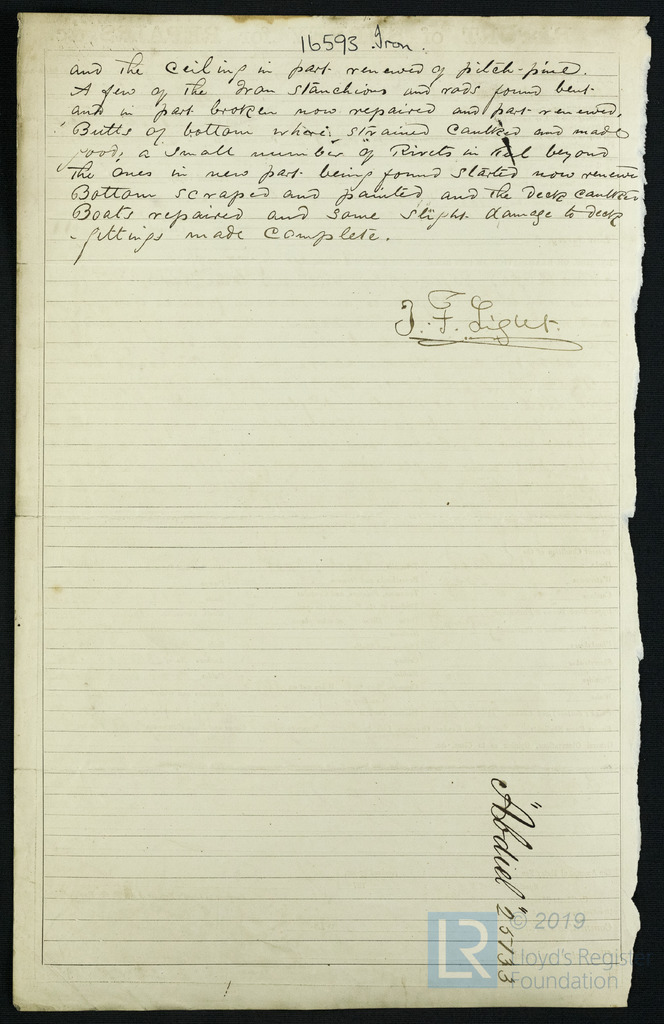 16593 Iron.
and the ceiling in part renewed of pitch-pine.
A few of the Iron Stanchions and rods found bent
and in part broken now repaired and part renewed,
Butts of bottom where strained caulked and made
good, a small number of Rivets in keel beyond
the ones in new part being found started now renewed
Bottom scraped and painted and the deck caulked
Boats repaired and some slight damage to deck
fittings made complete.
J. F. Light.
"Abdiel" 25133
© 2019
LR
Lloyd's Register
Foundation